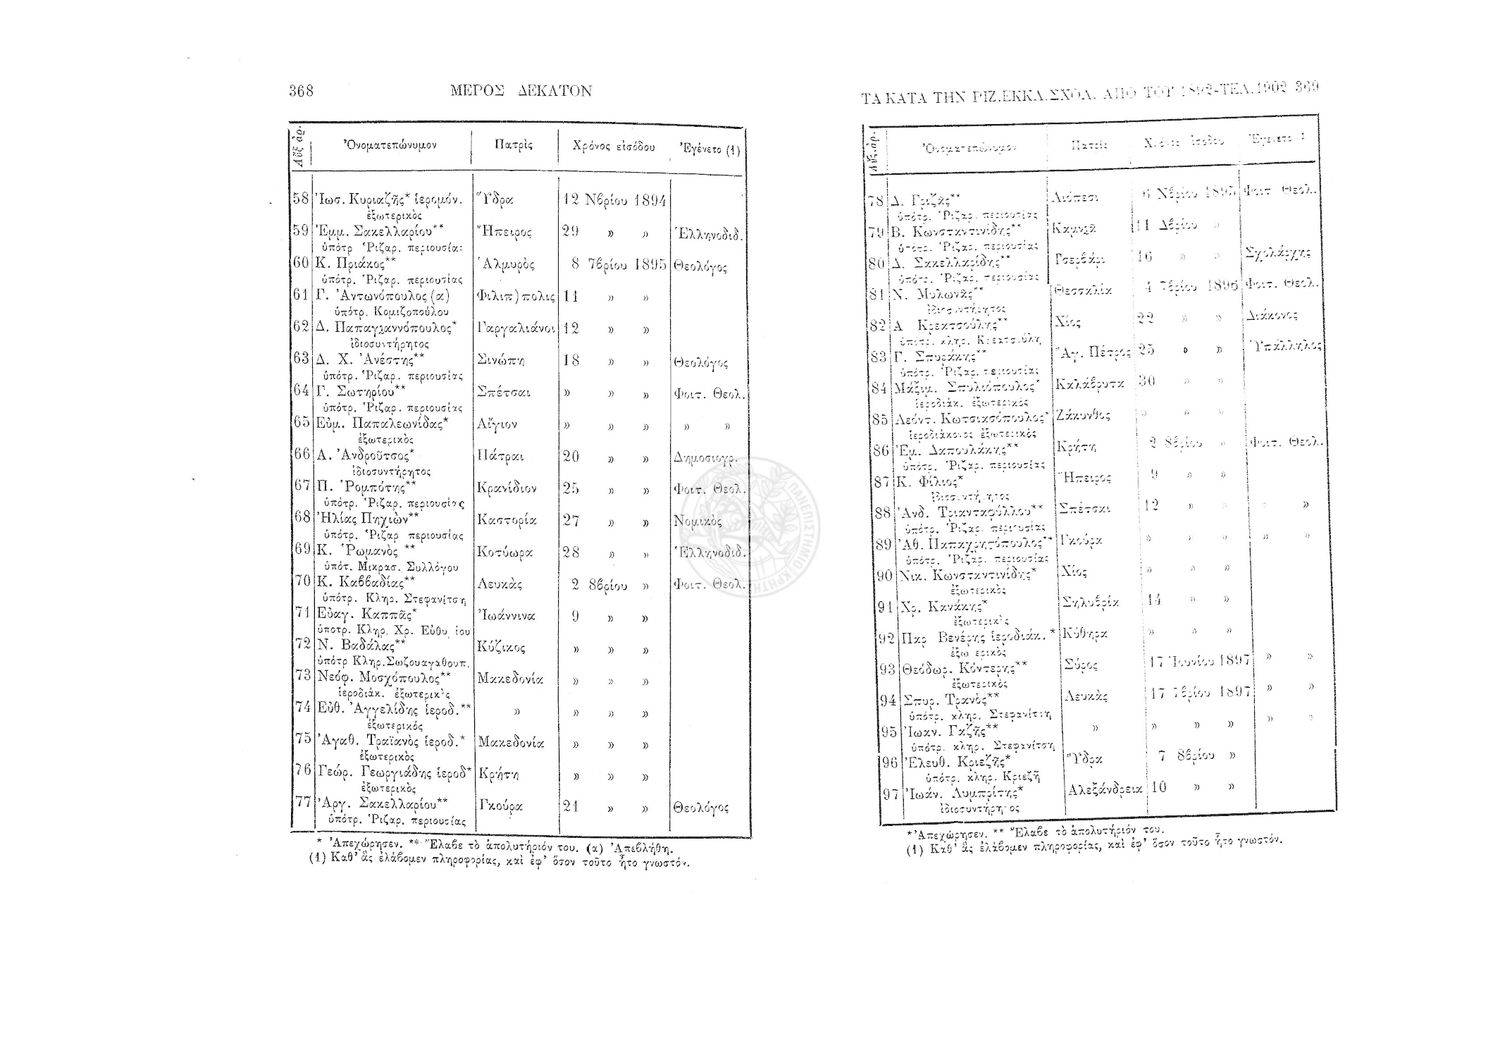 368 ΜΕΡΟΣ ΔΕΚΑΤΟΝ
Αὔξ ἀρ. Ὀνοματεπώνυμον Πατρὶς Χρόνος εἰσόδου Ἐγένετο (1)
58 Ἰωσ. Κυριαζῆς* ἱερομόν. Ὕδρα 12 Νβρίου 1894
ἐξωτερικὸς
59 Ἐμμ. Σακελλαρίου** Ἤπειρος 29 » » Ἑλληνοδιδ.
ὑπότρ Ῥιζαρ. περιουσία:
60 Κ. Πριάκος** Ἁλμυρὸς 8 7βρίου 1895 Θεολόγος
ὑπότρ. Ῥιζαρ. περιουσίας
61 Γ. Ἀντωνόπουλος (α) Φιλιπ)πολις 11 » »
ὑπότρ. Κομιζοπούλου
62 Δ. Παπαγιαννόπουλος* Γαργαλιάνοι 12 » »
ἰδιοσυντήρητος
63 Δ. Χ. Ἀνέστης** Σινώπη 18 » » Θεολόγος
ὑπότρ. Ῥιζαρ. περιουσίας
64 Γ. Σωτηρίου** Σπέτσαι » » » Φοιτ. Θεολ.
ὑπότρ. Ῥιζαρ. περιουσίας
65 Εὐμ. Παπαλεωνίδας* Αἴγιον » » » » »
ἐξωτερικὸς
66 Α. Ἀνδροῦτσος* Πάτραι 20 » » Δημοσιογρ.
ἰδιοσυντήρητος
67 Π. Ῥομπότης** Κρανίδιον 25 » » Φοιτ. Θεολ.
ὑπότρ. Ῥιζαρ. περιουσίας
68 Ἠλίας Πηχιών** Καστορία 27 » » Νομικὸς
ὑπότρ. Ῥιζαρ περιουσίας
69 Κ. Ῥωμανὸς ** Κοτύωρα 28 » » Ἑλληνοδιδ.
ὑπότ. Μικρασ. Συλλόγου
70 Κ. Καββαδίας** Λευκὰς 2 8βρίου » Φοιτ. Θεολ.
ὑπότρ. Κληρ. Στεφανίτση
71 Εὐαγ. Καππᾶς* Ἰωάννινα 9 » »
ὑποτρ. Κληρ. Χρ. Εὐθυ ίου
72 Ν. Βαδάλας** Κύζικος » » »
ὑπότρ Κληρ.Σωζουαγαθουπ.
73 Νεόφ. Μοσχόπουλος** Μακεδονία » » »
ἱεροδιάκ. ἐξωτερικὸς
74 Εὐθ. Ἀγγελίδης ἱεροδ.** » » » »
ἐξωτερικὸς
75 Ἀγαθ. Τραϊανὸς ἱεροδ.* Μακεδονία » » »
ἐξωτερικὸς
76 Γεώρ. Γεωργιάδης ἱεροδ* Κρήτη » » »
ἐξωτερικὸς
77 Ἀργ. Σακελλαρίου** Γκούρα 21 » » Θεολόγος
ὑπότρ. Ῥιζαρ. περιουσίας
* Ἀπεχώρησεν. ** Ἔλαβε τὸ ἀπολυτήριόν του. (α) Ἀπεβλήθη.
(1) Καθ' ἃς ἐλάβομεν πληροφορίας, καὶ ἐφ' ὅσον τοῦτο ἦτο γνωστόν.
ΤΑ ΚΑΤΑ ΤΗΝ ΡΙΖ.ΕΚΚΛ.ΣΧΟΛ. ΑΠΟ ΤΟΥ 1892-ΤΕΛ.1902 369
Ὀνοματεπώνυμον Πατρὶς Χρόνος εἰσόδου Ἐγένετο
78 Δ. Γριζᾶς** Λιόπεσι 6 Νβρίου 1895 Φοιτ Θεολ.
ὑπότρ. Ῥιζαρ. περιουσίας
79 Β. Κωνσταντινίδης** 11 Δβρίου »
ὑπότρ. Ῥιζαρ. περιουσίας
80 Δ. Σακελλαρίδης** Τσερβάρι 16 » » Σχολάρχης
ὑπότρ. Ῥιζαρ. περιουσίας
81 Ν. Μυλωνᾶς** Θεσσαλία 4 7βρίου 1896 Φοιτ. Θεολ.
ἰδιοσυντήρητος
82 Α Κρεατσούλης** Χίος 22 » » Διάκονος
ὑπότρ. κληρ. Κρεατσούλη
83 Γ. Σπυράκης** Ἁγ. Πέτρος 25 » » Ὑπάλληλος
ὑπότρ. Ῥιζαρ. περιουσίας
84 Μάξιμ. Σπυλιόπουλος* Καλάβρυτα 30 » »
ἱεροδιάκ. ἐξωτερικὸς
85 Λεόντ. Κωτσιασόπουλος* Ζάκυνθος » » »
ἱεροδιάκονος ἐξωτερικὸς
86 Ἐμ. Δαπουλάκης** Κρήτη 2 8βρίου » Φοιτ. Θεολ.
ὑπότρ. Ῥιζαρ. περιουσίας
87 Κ. Φίλιος* Ἤπειρος 9 » »
ἰδιοσυντήρητος
88 Ἀνδ. Τριανταφύλλου** Σπέτσαι 12 » » » »
ὑπότρ. Ῥιζαρ. περιουσίας
89 Ἀθ. Παπαχρηστόπουλος** Γκούρα » » » » »
ὑπότρ. Ῥιζαρ. περιουσίας
90 Νικ. Κωνσταντινίδης* Χίος » » »
ἐξωτερικὸς
91 Χρ. Κανάκης* Σηλυβρία 14 » »
ἐξωτερικὸς
92 Παρ Βενέρης ἱεροδιάκ. * Κύθηρα » » »
ἐξωτερικὸς
93 Θεόδωρ. Κόντερης** Σύρος 17 Ἰουνίου 1897 » »
ἐξωτερικὸς
94 Σπυρ. Τρανὸς** Λευκὰς 17 7βρίου 1897 » »
ὑπότρ. κληρ. Στεφανίτση
95 Ἰωαν. Γαζῆς** » » » » » »
ὑπότρ. κληρ. Στεφανίτση
96 Ἐλευθ. Κριεζῆς* Ὕδρα 7 8βρίου »
ὑπότρ. κληρ. Κριεζῆ
97 Ἰωάν. Λυμπρίτης* Ἀλεξάνδρεια 10 » »
ἰδιοσυντήρητος
*Ἀπεχώρησεν. ** Ἔλαβε τὸ ἀπολυτήριόν του.
(1) Καθ' ἃς ἐλάβομεν πληροφορίας, καὶ ἐφ' ὅσον τοῦτο ἦτο γνωστόν.
ΠΑΝΕΠΙΣΤΗΜΙΟ ΚΡΗΤΗΣ